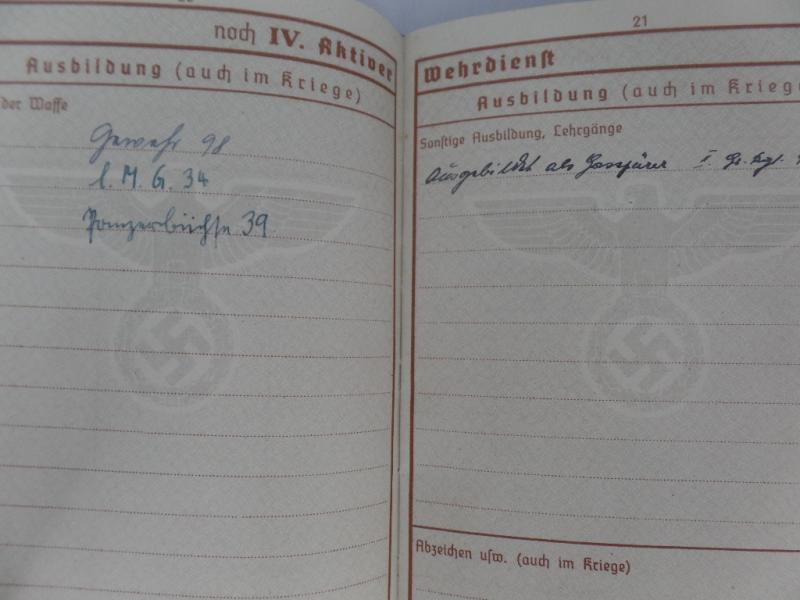 noch IV. Aktiver
Ausbildung (auch im Kriege)
der Waffe
Gewehr 98
l. M. G. 34
Panzerbüchse 39
21
Wehrdienst
Ausbildung (auch im Kriege
Sonstige Ausbildung, Lehrgänge
Ausgebildet als Gasspürer I. Gr. Rgt.
Abzeichen usw. (auch im Kriege)